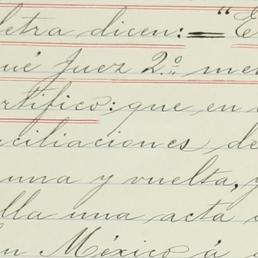 letra dicen: — "E
ué Juez 2º. me
rtifico: que en
ciliaciones de
una y vuelta, y
lla una acta
n México á